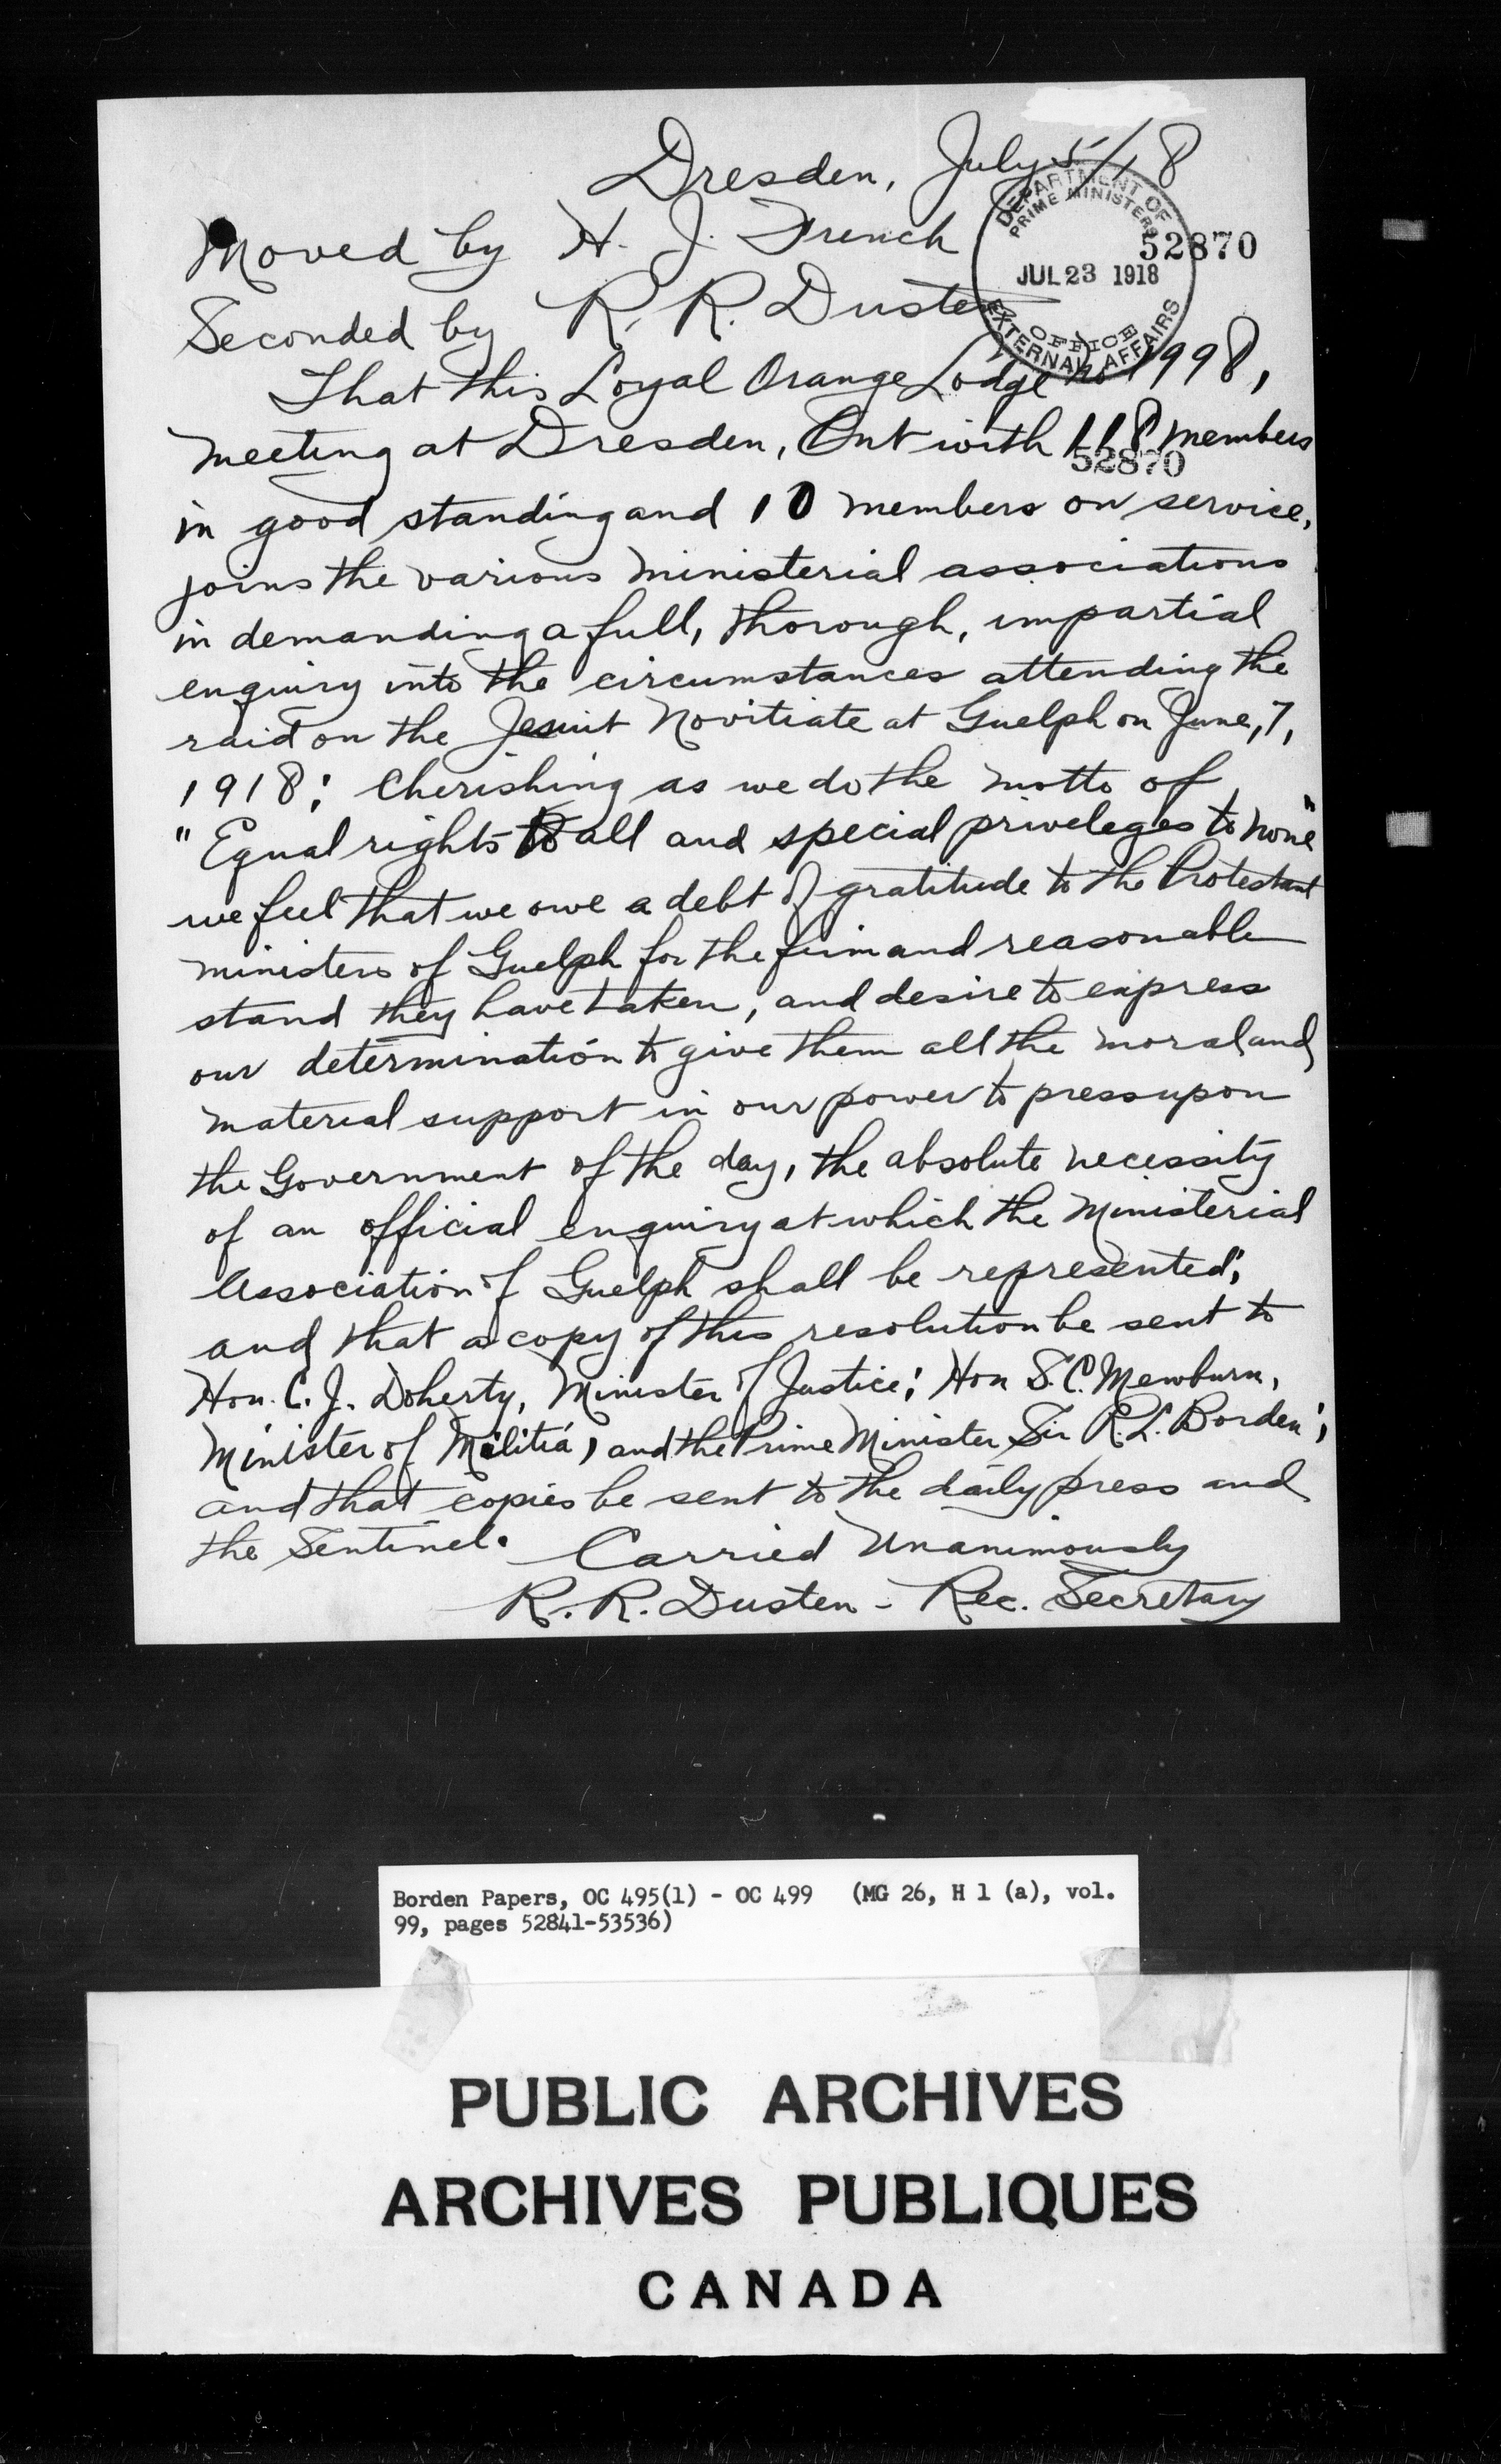 Dresden, July 5/18
DEPARTMENT OF
PRIME MINISTERS
52870
JUL 23 1918
OFFICE
EXTERNAL AFFAIRS
Moved by H. J. French
Seconded by R. R. Dusten
That this Loyal Orange Lodge no 1998,
meeting at Dresden, Ont with 118 members
52870
in good standing and 10 members on service,
joins the various ministerial associations
in demanding a full, thorough, impartial
enquiry into the circumstances attending the
raid on the Jesuit Novitiate at Guelph on June, 7,
1918; Cherishing as we do the motto of
"Equal rights to all and special priveleges to none"
we feel that we owe a debt of gratitude to the Protestant
ministers of Guelph for the firm and reasonable
stand they have taken, and desire to express
our determination to give them all the moral and
material support in our power to press upon
the Government of the day, the absolute necessity
of an official enquiry at which the Ministerial
Association of Guelph shall be represented;
and that a copy of this resolution be sent to
Hon. C. J. Doherty, Minister of Justice; Hon S. C. Mewburn,
Minister of Militia, and the Prime Minister Sir R. L. Borden;
and that copies be sent to the daily press and
the Sentinel. Carried Unanimously
R. R. Dusten - Rec. Secretary
Borden Papers, OC 495(1) - OC 499 (MG 26, H 1 (a), vol.
99, pages 52841-53536)
PUBLIC ARCHIVES
ARCHIVES PUBLIQUES
CANADA